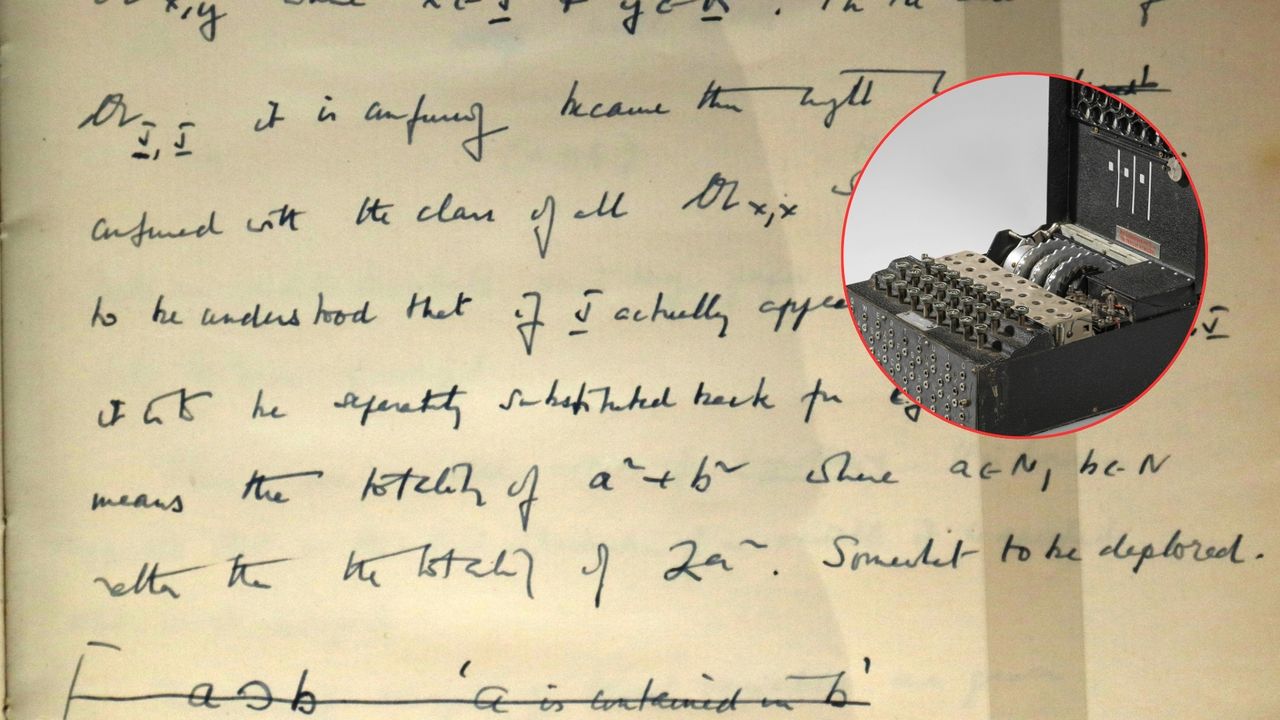 x,y where x ∈ J + y ∈ K. In
𝔄 J, J it is confusing because then might
confused with the class of all 𝔄 x,x
to be understood that if J actually appea , J
it is to be separately substituted back for
means the totality of a² + b² where a ∈ N, b ∈ N
rather than the totality of 2a². Somewhat to be deplored.
a ⊃ b 'a is contained in b'